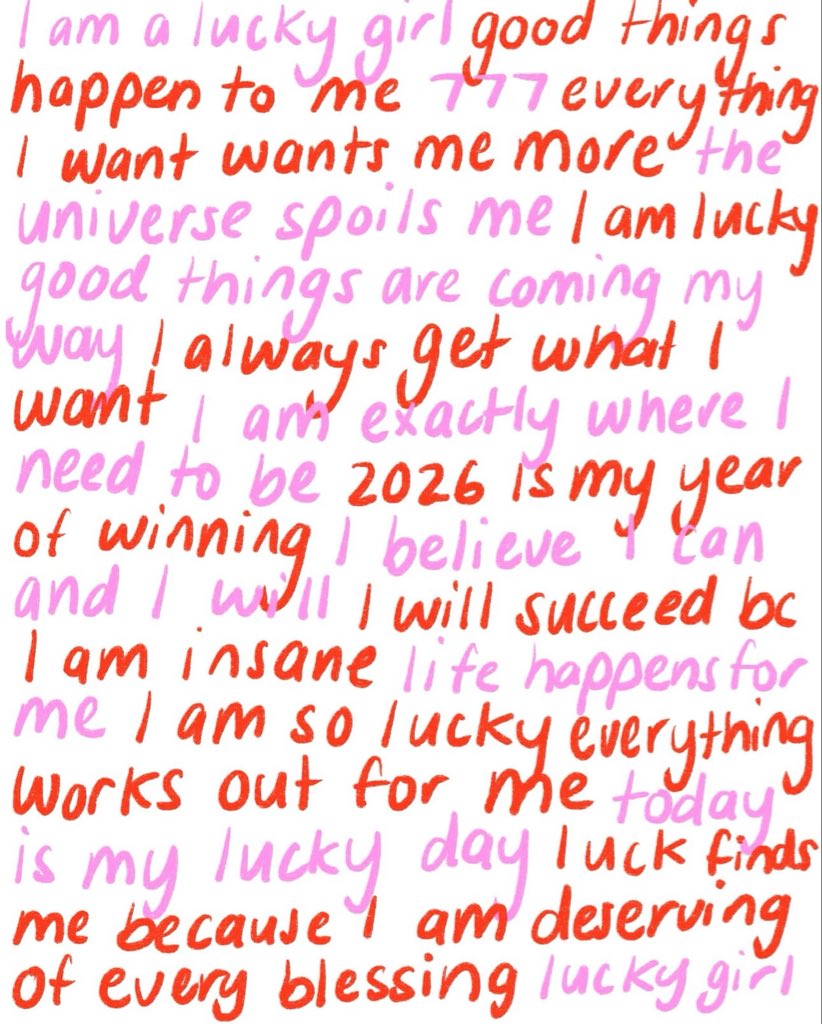 I am a lucky girl good things
happen to me 777 everything
I want wants me more the
universe spoils me I am lucky
good things are coming my
way I always get what I
want I am exactly where I
need to be 2026 is my year
of winning I believe I can
and I will I will succeed bc
I am insane life happens for
me I am so lucky everything
works out for me today
is my lucky day luck finds
me because I am deserving
of every blessing lucky girl